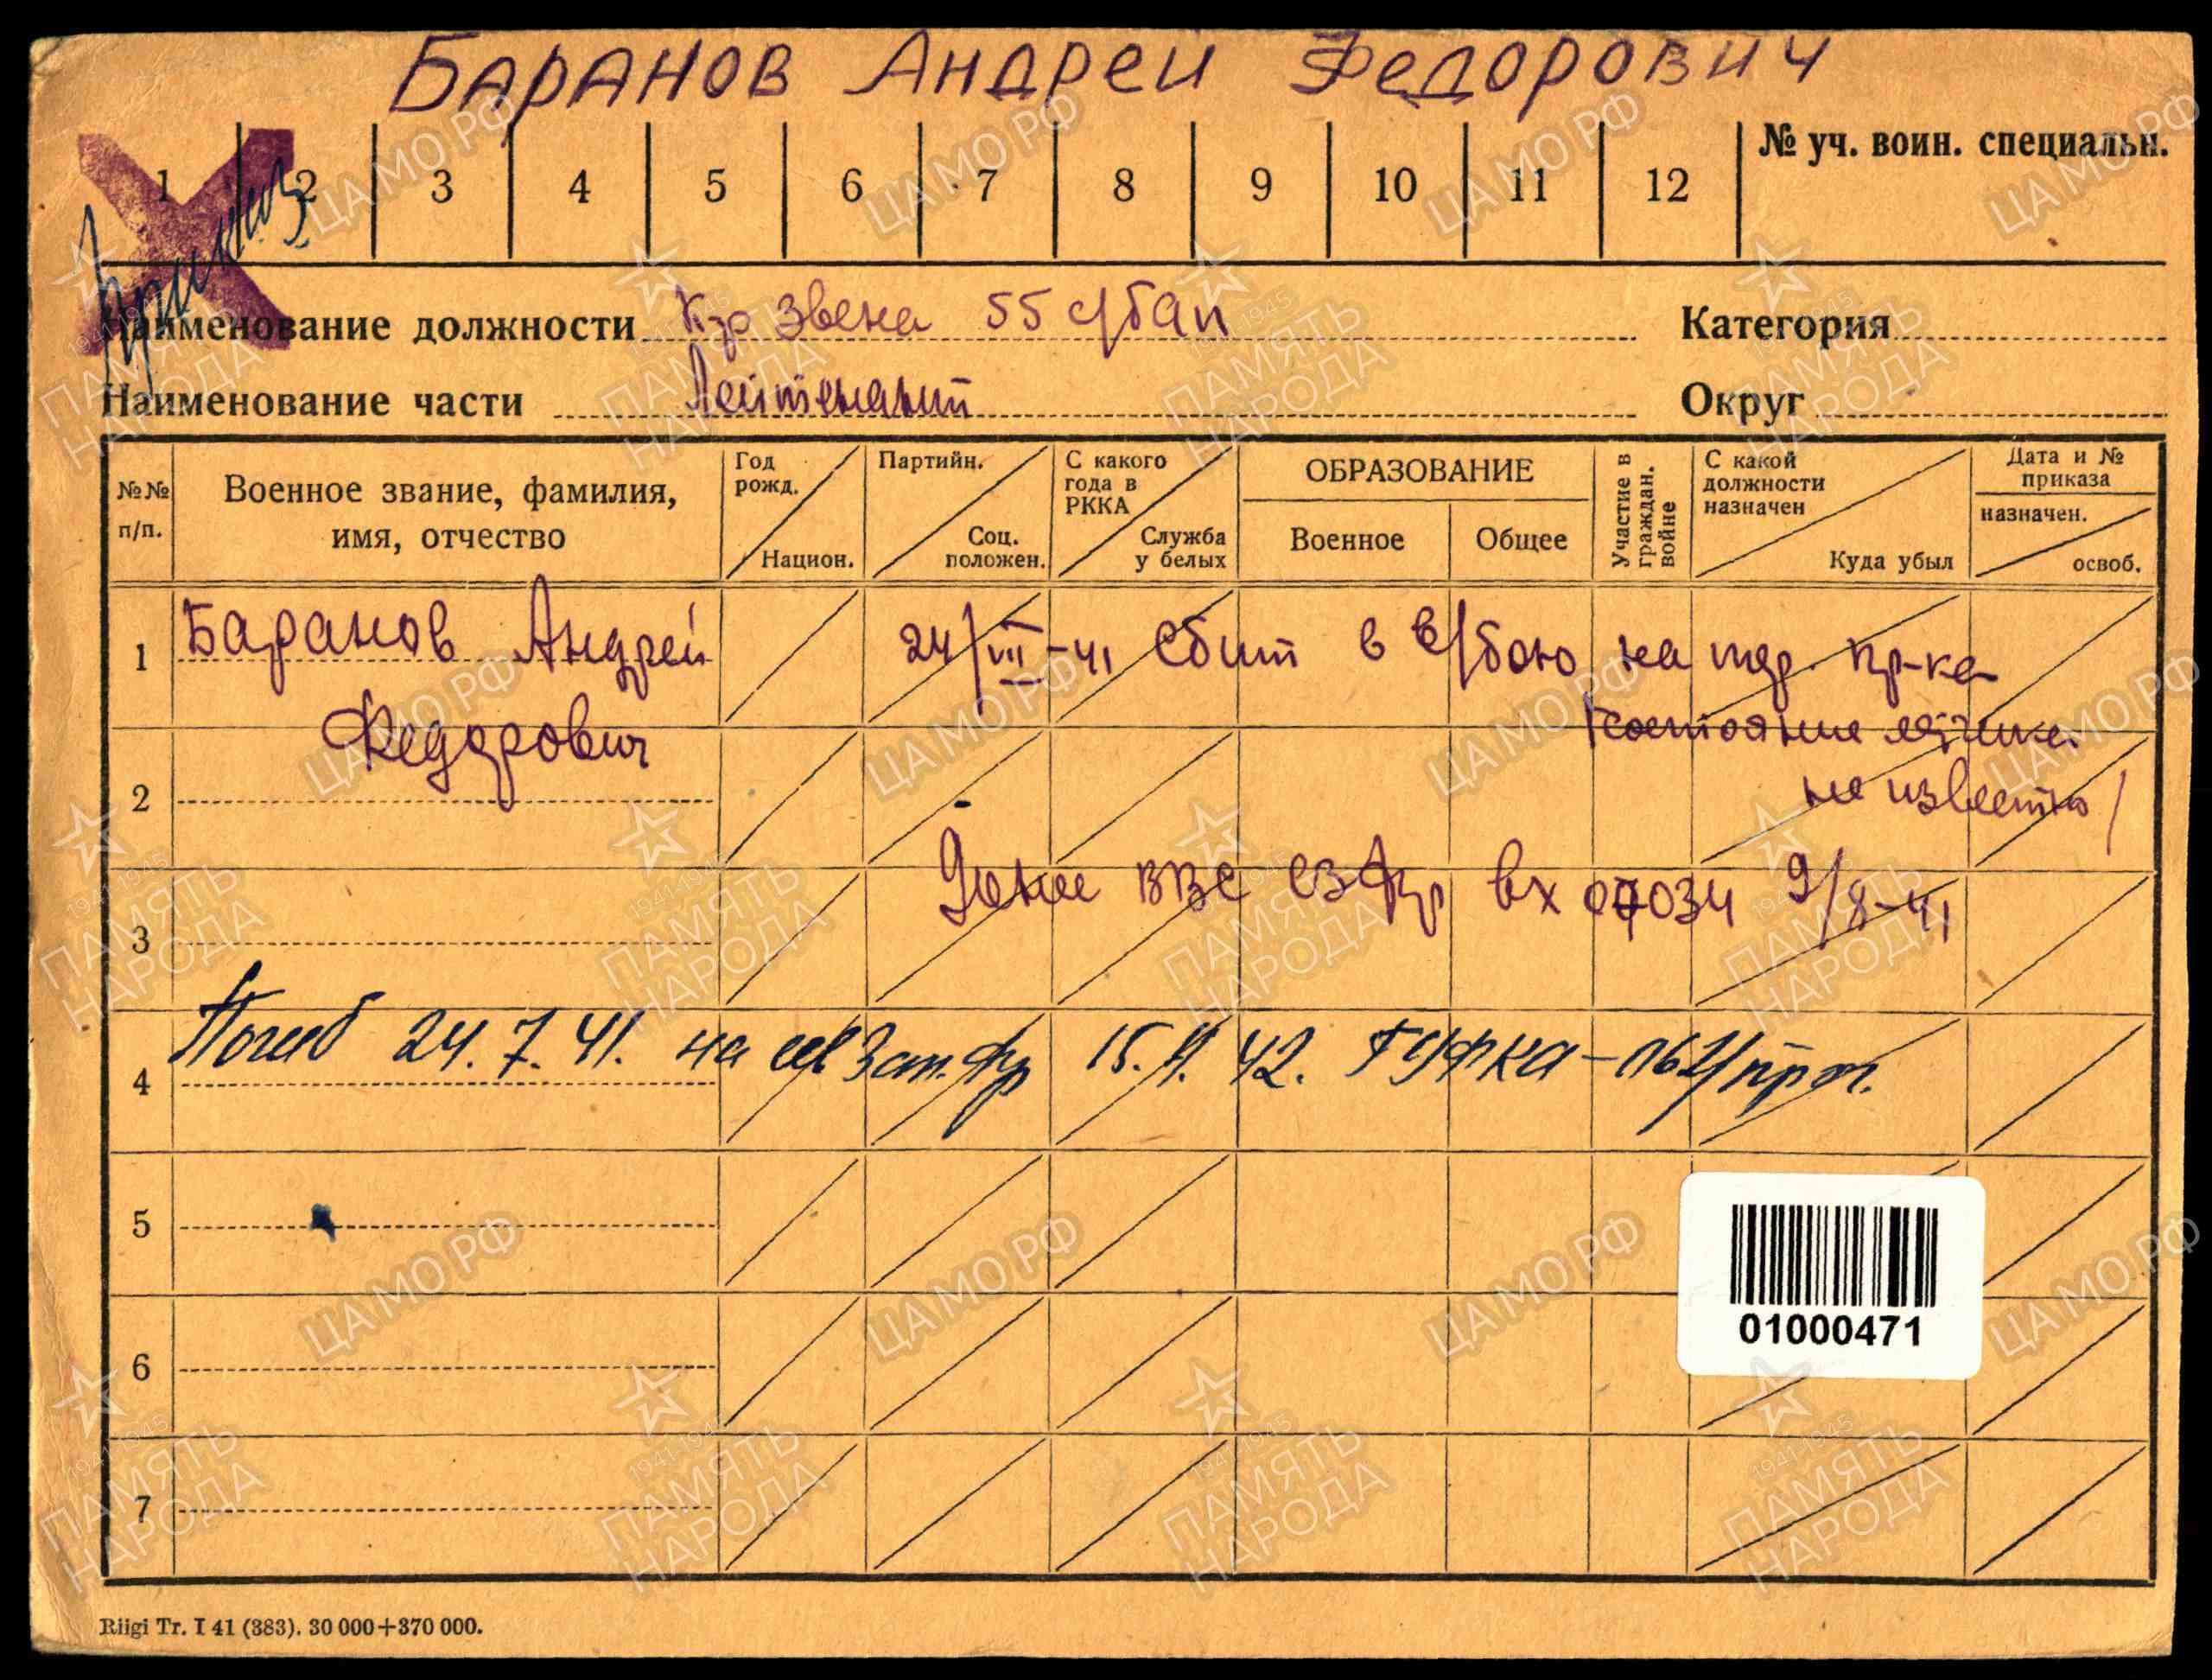 Баранов Андрей Федорович
1 2 3 4 5 6 7 8 9 10 11 12 № уч. воин. специальн.
Наименование должности К-р звена 55 с/бап Категория
Наименование части Лейтенант Округ
№№ п/п.
Военное звание, фамилия,
имя, отчество
Год рожд.
Национ.
Партийн.
Соц. положен.
С какого года в РККА
Служба у белых
ОБРАЗОВАНИЕ
Военное Общее
Участие в граждан. войне
С какой должности назначен
Куда убыл
Дата и № приказа
назначен.
освоб.
1 Баранов Андрей 24/VII-41 сбит в в/бою на тер. пр-ка
Федорович /состояние летчика
2 не известно/
3 Донес ВВС СЗФр вх 07034 9/8-41
4 Погиб 24.7.41. на сев Зап. фр 42. ГУФКА
5
6
7
01000471
Riigi Tr. I 41 (383). 30 000+370 000.
ЦАМО РФ
1941-1945
ПАМЯТЬ
НАРОДА